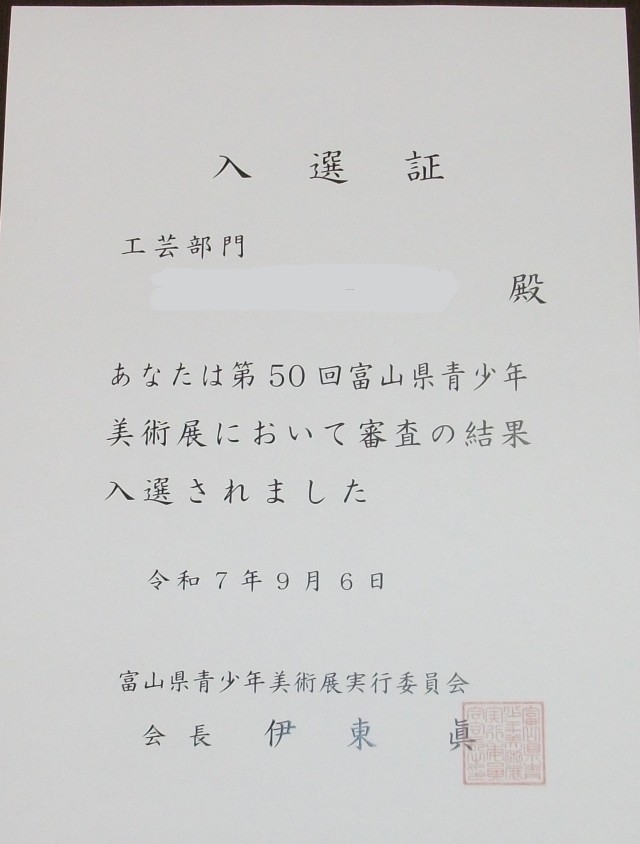 入選証
工芸部門
殿
あなたは第50回富山県青少年
美術展において審査の結果
入選されました
令和7年9月6日
富山県青少年美術展実行委員会
会長 伊東 眞